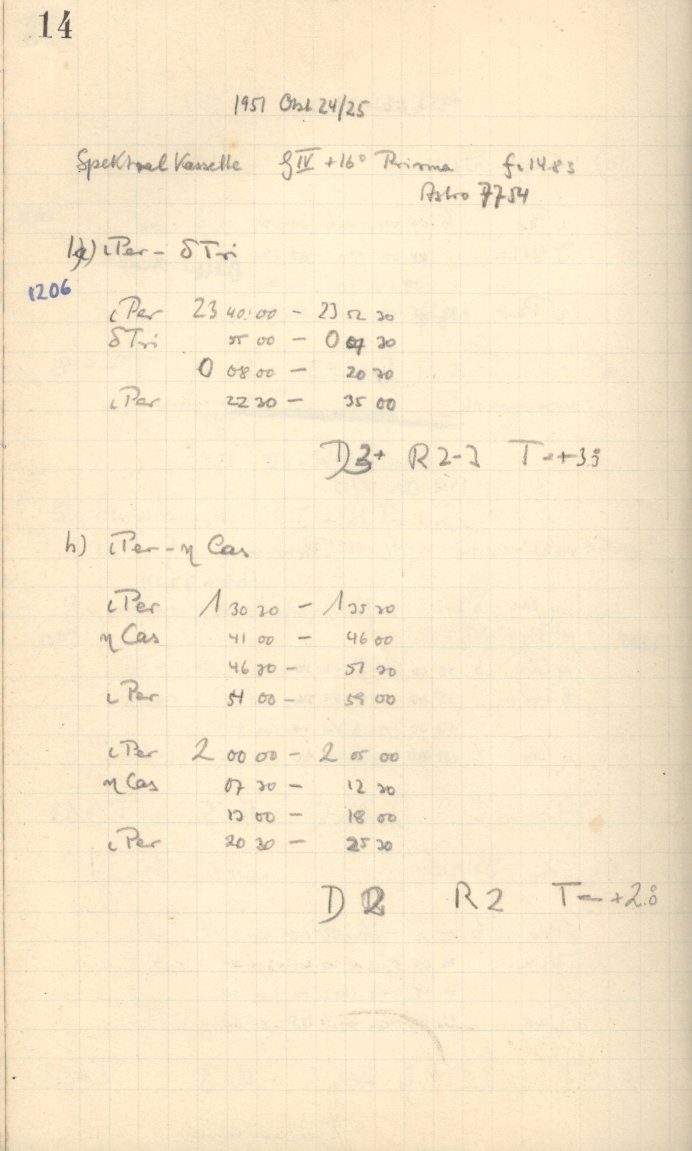 14
1951 Okt 24/25
Spektral Kassette IV + 16° Prisma f. 14.83
Astro 7754
a) ιPer – δTri
1206
ιPer 23 40 00 – 23 52 30
δTri 55 00 – 0 07 30
0 08 00 – 20 30
ιPer 22 30 – 35 00
D3+ R 2-3 T = +3°.3
b) ιPer – η Cas
ιPer 1 30 30 – 1 35 30
ηCas 41 00 – 46 00
46 30 – 51 30
ιPer 54 00 – 59 00
ιPer 2 00 00 – 2 05 00
ηCas 07 30 – 12 30
13 00 – 18 00
ιPer 20 30 – 25 30
D 2 R 2 T = +2°.0